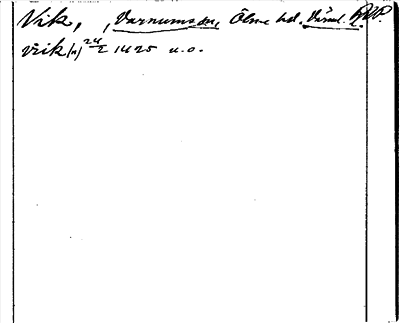 Vik, , Varnums sn, Ölme hd. Värml. RAP.
vik (n) 24/2 1425 u.o.